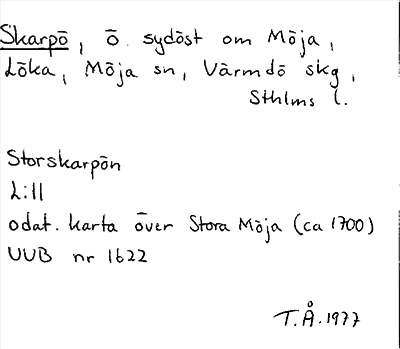 Skarpö, ö. sydöst om Möja,
Löka, Möja sn, Värmdö skg,
Sthlms l.
Storskarpön
L:11
odat. karta över Stora Möja (ca 1700)
UUB nr 1622
T.Å. 1977